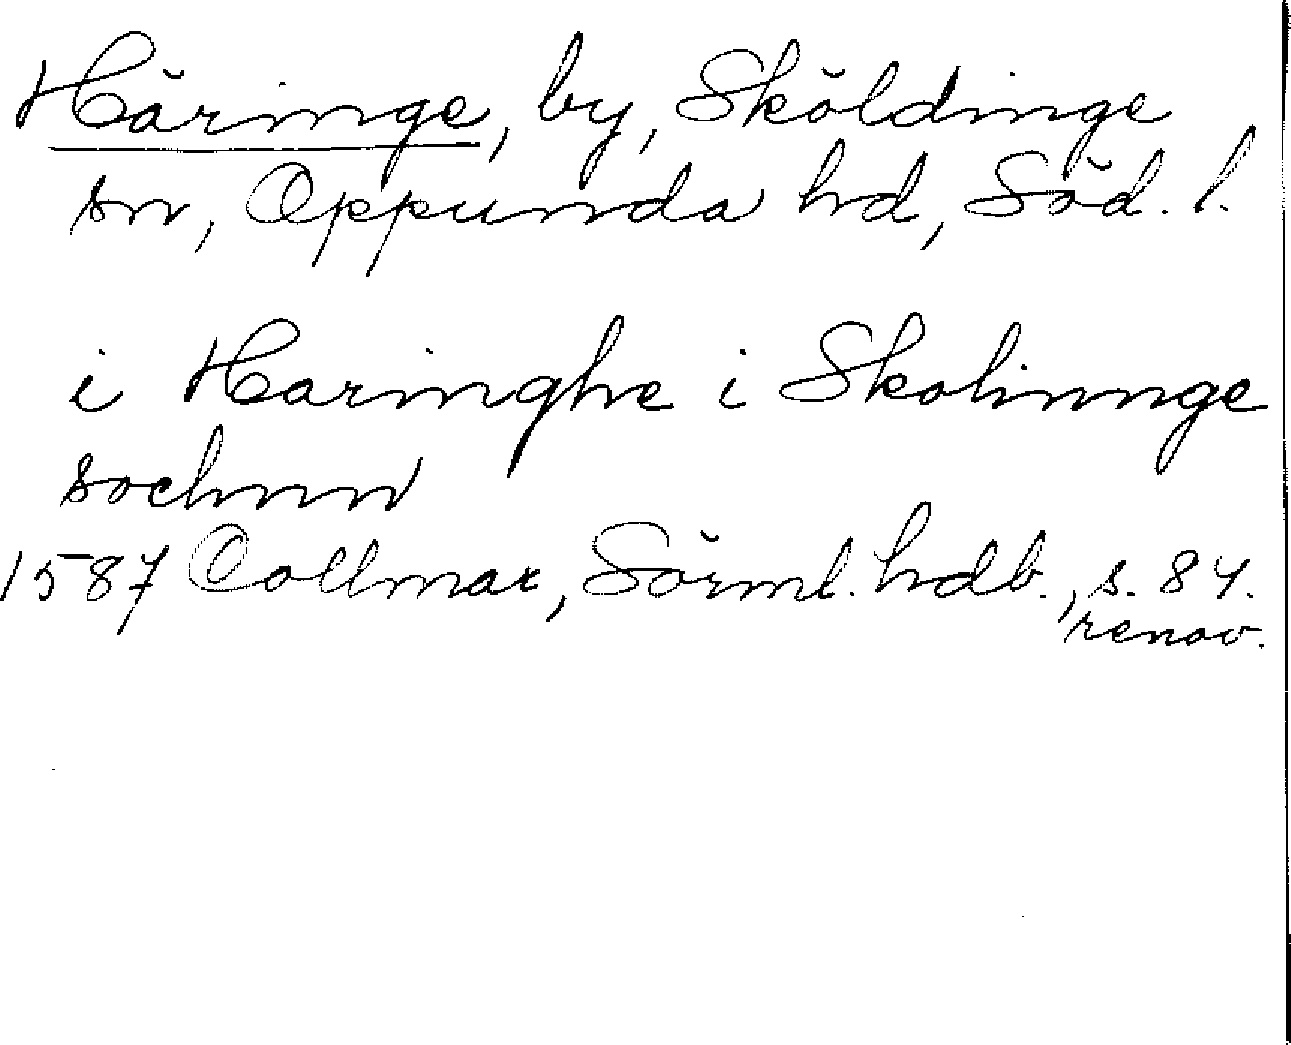 Häringe, by, Sköldinge
sn, Oppunda hd, Söd. l.
i Haringhe i Skolinnge
sochnn
1587 Collmar, Sörml. hdb., s. 84.
renov.